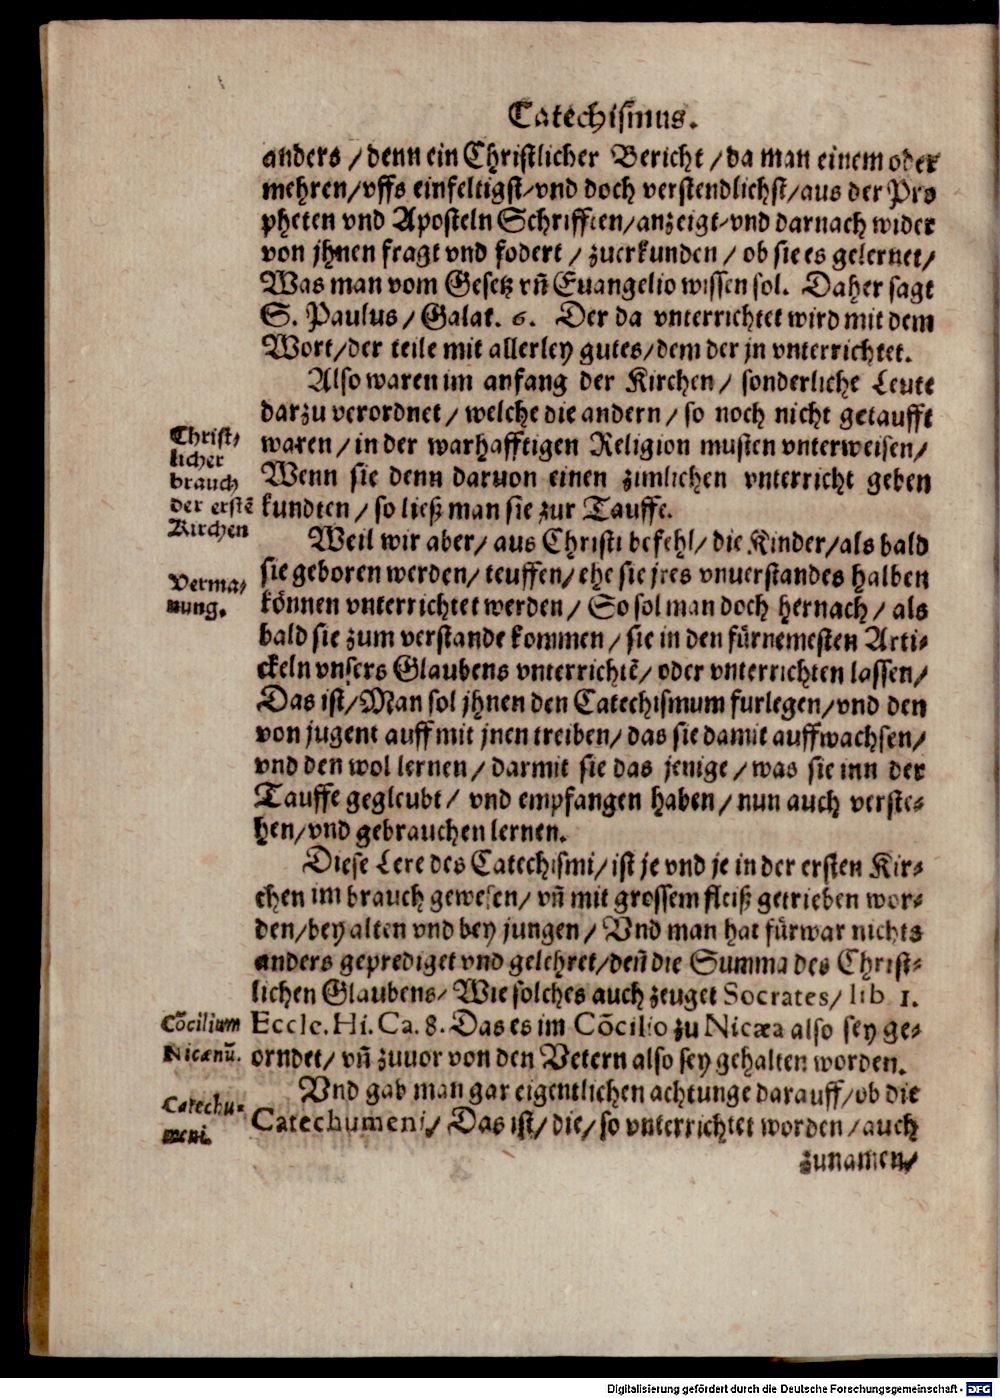 Catechismus.
anders / denn ein Christlicher Bericht / da man einem oder
mehren / vffs einfeltigst / vnd doch verstendlichst / aus der Pro
pheten vnd Aposteln Schrifften / anzeigt / vnd darnach wider
von jhnen fragt vnd fodert / zuerkunden / ob sie es gelernet /
Was man vom Gesetz vñ Euangelio wissen sol. Daher sagt
S. Paulus / Galat. 6. Der da vnterrichtet wird mit dem
Wort / der teile mit allerley gutes / dem der jn vnterrichtet.
Also waren im anfang der Kirchen / sonderliche Leute
darzu verordnet / welche die andern / so noch nicht getaufft
waren / in der warhafftigen Religion musten vnterweisen /
Wenn sie denn daruon einen zimlichen vnterricht geben
kundten / so ließ man sie zur Tauffe.
Christ-
licher
brauch
der erstẽ
Kirchen
Weil wir aber / aus Christi befehl / die Kinder / als bald
sie geboren werden / teuffen / ehe sie jres vnuerstandes halben
können vnterrichtet werden / So sol man doch hernach / als
bald sie zum verstande kommen / sie in den fürnemesten Arti-
ckeln vnsers Glaubens vnterrichtẽ / oder vnterrichten lassen /
Das ist / Man sol jhnen den Catechismum furlegen / vnd den
von jugent auff mit jnen treiben / das sie damit auffwachsen /
vnd den wol lernen / darmit sie das jenige / was sie inn der
Tauffe gegleubt / vnd empfangen haben / nun auch verste-
hen / vnd gebrauchen lernen.
Verma-
nung.
Diese Lere des Catechismi / ist je vnd je in der ersten Kir-
chen im brauch gewesen / vñ mit grossem fleiß getrieben wor-
den / bey alten vnd bey jungen / Vnd man hat fürwar nichts
anders geprediget vnd gelehret / deñ die Summa des Christ-
lichen Glaubens / Wie solches auch zeuget Socrates / lib 1.
Eccle. Hi. Ca. 8. Das es im Cõcilio zu Nicæa also sey ge-
orndet / vñ zuuor von den Vetern also sey gehalten worden.
Cõcilium
Nicænũ.
Vnd gab man gar eigentlichen achtunge darauff / ob die
Catechumeni / Das ist / die / so vnterrichtet worden / auch
Catechu-
meni.
zunamen /
Digitalisierung gefördert durch die Deutsche Forschungsgemeinschaft - DFG